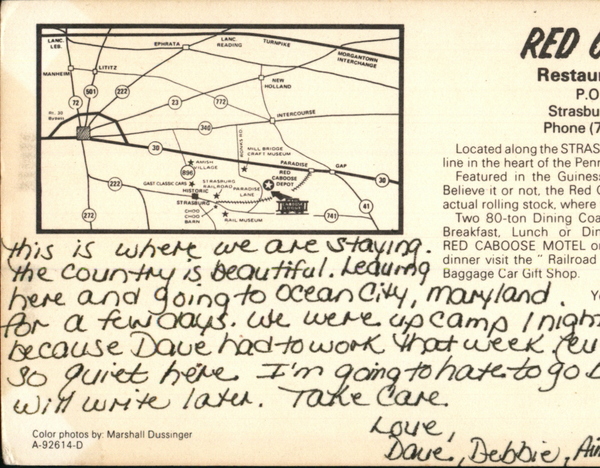 LANC. LEB.
EPHRATA
LANC. READING
TURNPIKE
MORGANTOWN INTERCHANGE
MANHEIM
LITITZ
NEW HOLLAND
72
501
222
23
772
Rt. 30 Bypass
INTERCOURSE
340
30
RONKS RD.
MILL BRIDGE CRAFT MUSEUM
AMISH VILLAGE
896
PARADISE
GAP
30
RED CABOOSE DEPOT
GAST CLASSIC CARS
STRASBURG RAILROAD
PARADISE LANE
HISTORIC STRASBURG
222
272
CHOO CHOO BARN
RAIL MUSEUM
741
41
RED
Restaur
P.O
Strasbu
Phone (7
Located along the STRAS
line in the heart of the Penn
Featured in the Guiness
Believe it or not, the Red C
actual rolling stock, where
Two 80-ton Dining Coa
Breakfast, Lunch or Din
RED CABOOSE MOTEL or
dinner visit the " Railroad
Baggage Car Gift Shop.
Yo
this is where we are staying.
the country is beautiful. Leaving
here and going to Ocean City, Maryland.
for a few days. We were up camp 1 night
because Dave had to work that week
so quiet here. I'm going to hate to go
will write later. Take Care.
Love,
Dave, Debbie,
Color photos by: Marshall Dussinger
A-92614-D